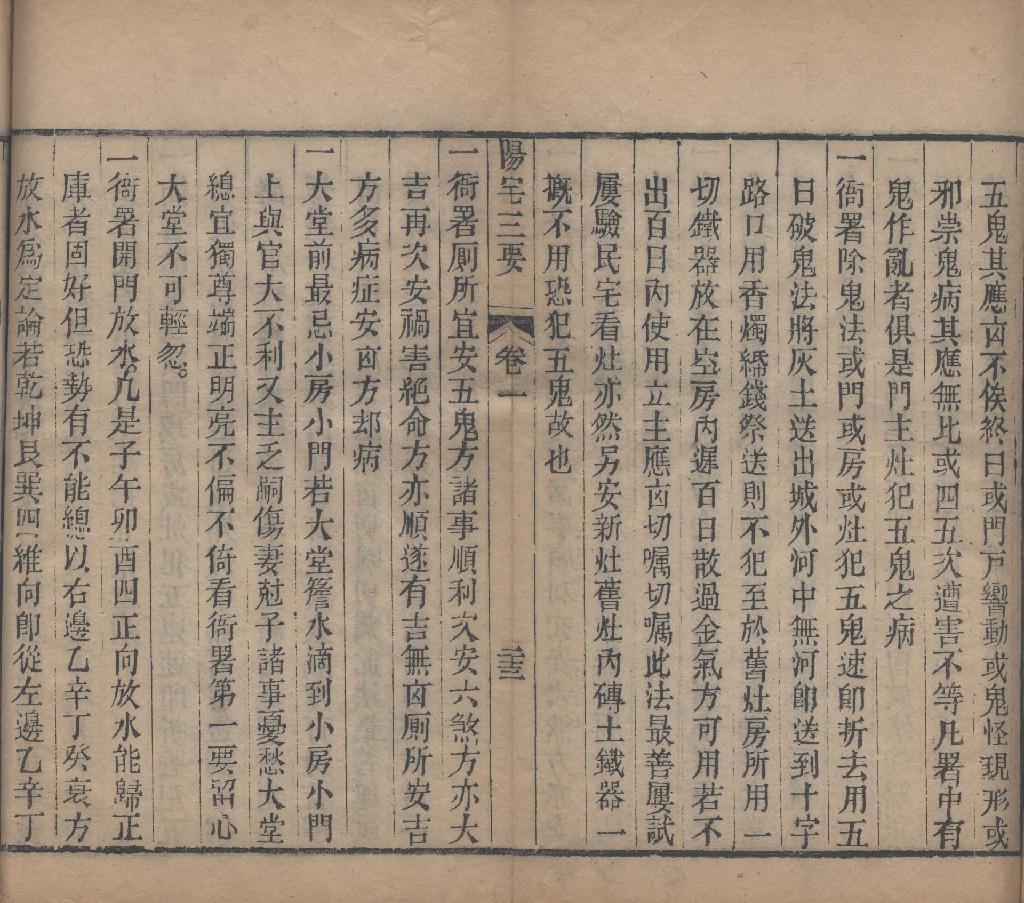 五鬼其應凶不俟終日或門戸響動或鬼怪現形或
邪祟鬼病其應無比或四五次遭害不等凡署中有
鬼作亂者俱是門主灶犯五鬼之病
一衙署除鬼法或門或房或灶犯五鬼速卽折去用五
日破鬼法將灰土送出城外河中無河卽送到十字
路口用香燭紙錢祭送則不犯至於舊灶房所用一
切鐵器放在空房內遲百日散過金氣方可用若不
出百日內使用立主應凶切嘱切嘱此法最善屢試
屢驗民宅看灶亦然另安新灶舊灶內磚土鐵器一
槪不用恐犯五鬼故也
陽宅三要 卷一 三三
一衙署厠所宜安五鬼方諸事順利次安六煞方亦大
吉再次安禍害絶命方亦順遂有吉無凶厠所安吉
方多病症安凶方却病
一大堂前最忌小房小門若大堂簷水滴到小房小門
上與官大不利又主乏嗣傷妻尅子諸事憂愁大堂
總宜獨尊端正明亮不偏不倚看衙署第一要畱心
大堂不可輕忽。
一衙署開門放水凡是子午卯酉四正向放水能歸正
庫者固好但恐勢有不能總以右邊乙辛丁癸衰方
放水爲定論若乾坤艮巽四維向卽從左邊乙辛丁